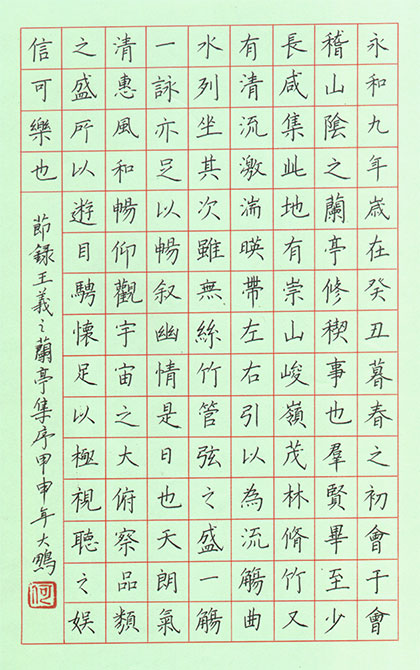 永和九年歳在癸丑暮春之初會于會
稽山陰之蘭亭修稧事也羣賢畢至少
長咸集此地有崇山峻嶺茂林脩竹又
有清流激湍暎帶左右引以為流觴曲
水列坐其次雖無絲竹管弦之盛一觴
一詠亦足以暢叙幽情是日也天朗氣
清惠風和暢仰觀宇宙之大俯察品類
之盛所以遊目騁懷足以極視聽之娛
信可樂也
節録王羲之蘭亭集序甲申年大鵬
何